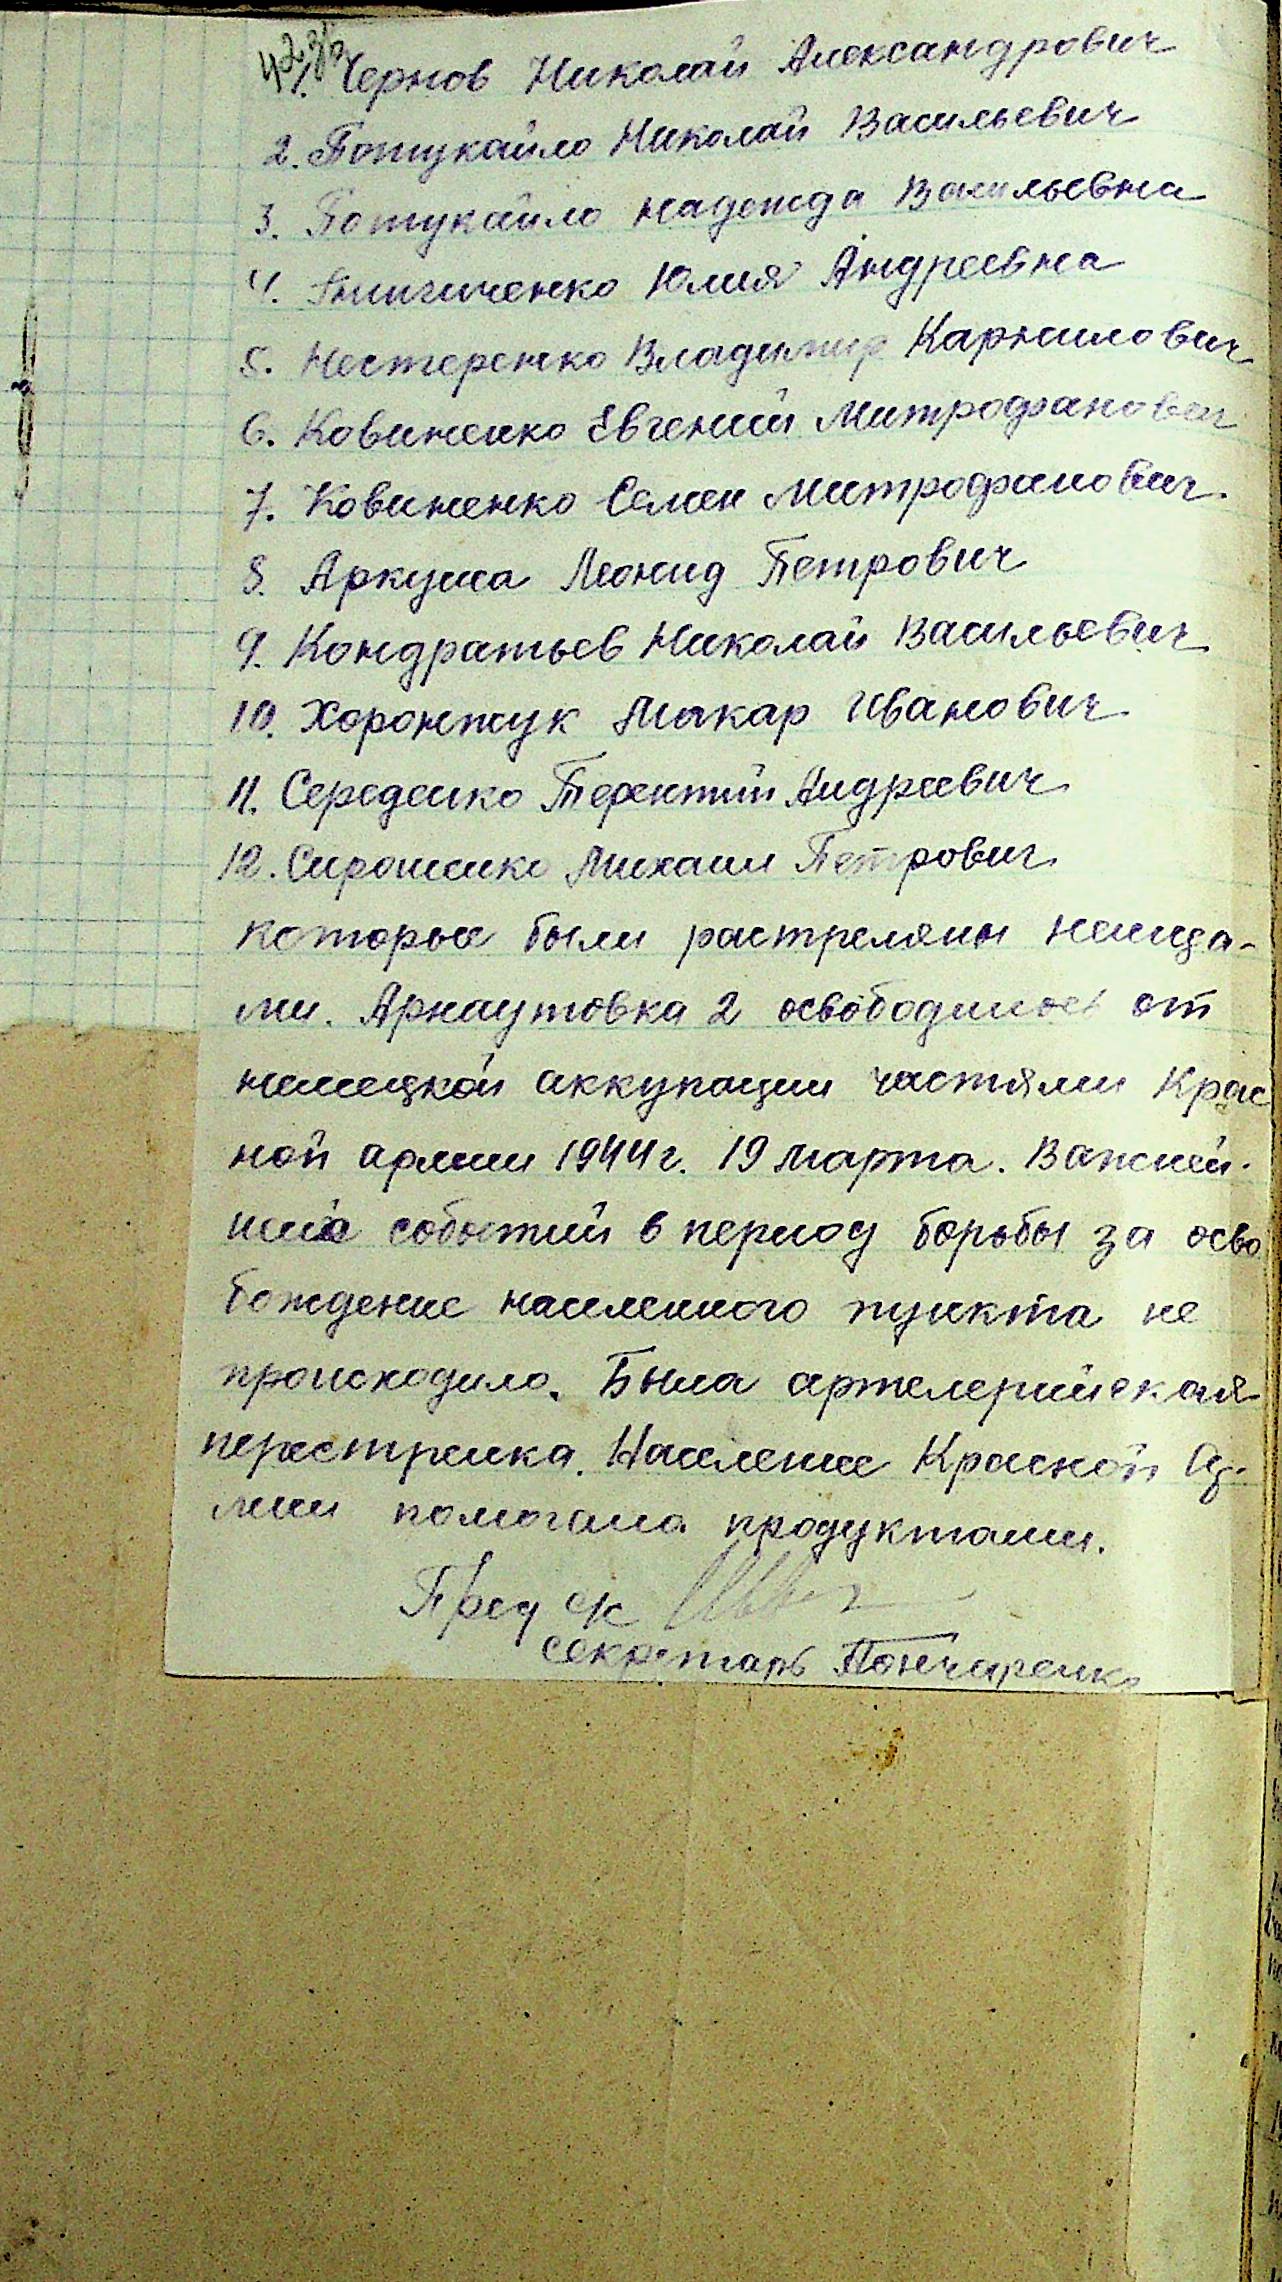 423
1. Чернов Николай Александрович
2. Потукайло Николай Васильевич
3. Потукайло Надежда Васильевна
4. Юлия Андреевна
5. Нестеренко Владимир Карнилович
6. Ковиненко Евгений Митрофанович
7. Ковиненко Семен Митрофанович.
8. Аркуша Леонид Петрович
9. Кондратьев Николай Васильевич
10. Хоронжук Макар Иванович
11. Середенко Терентий Андреевич
12. Михаил Петрович
которые были растреляны немца-
ми. Арнаутовка 2 освободилось от
немецкой аккупации частями Крас
ной армии 1944 г. 19 марта. Важней-
ших событий в период борьбы за осво
бождение населенного пункта не
происходило. Была артелерийская
перестрелка. Население Красной Ар-
мии помогала продуктами.
Пред с/с
секретарь Гончаренко